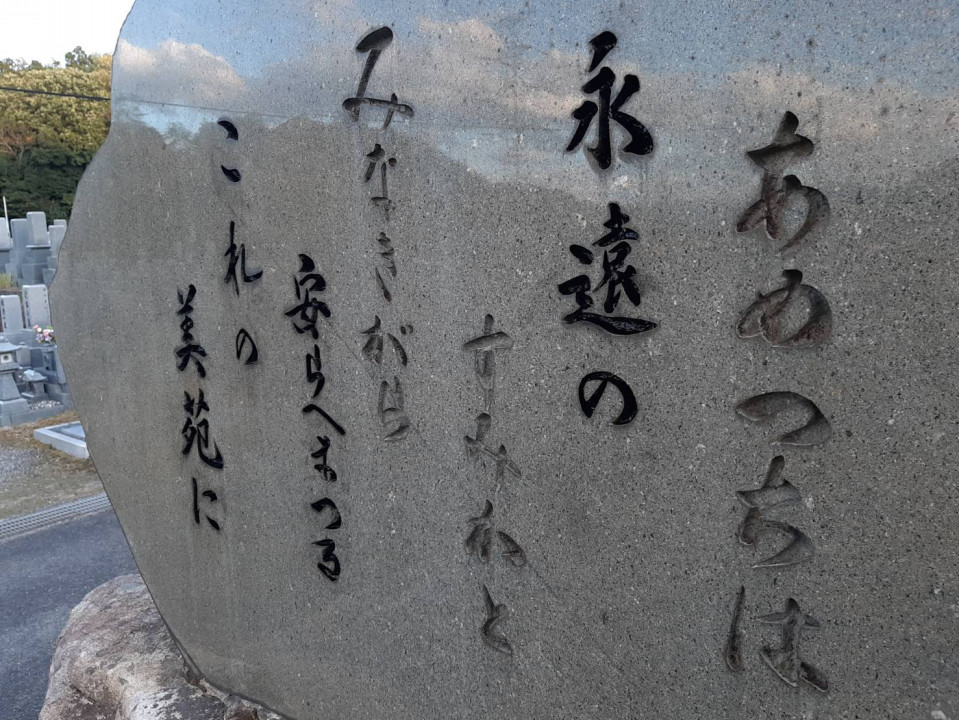 あめつちは
永遠の
すみかと
みなきがら
安らへまつる
これの
美苑に